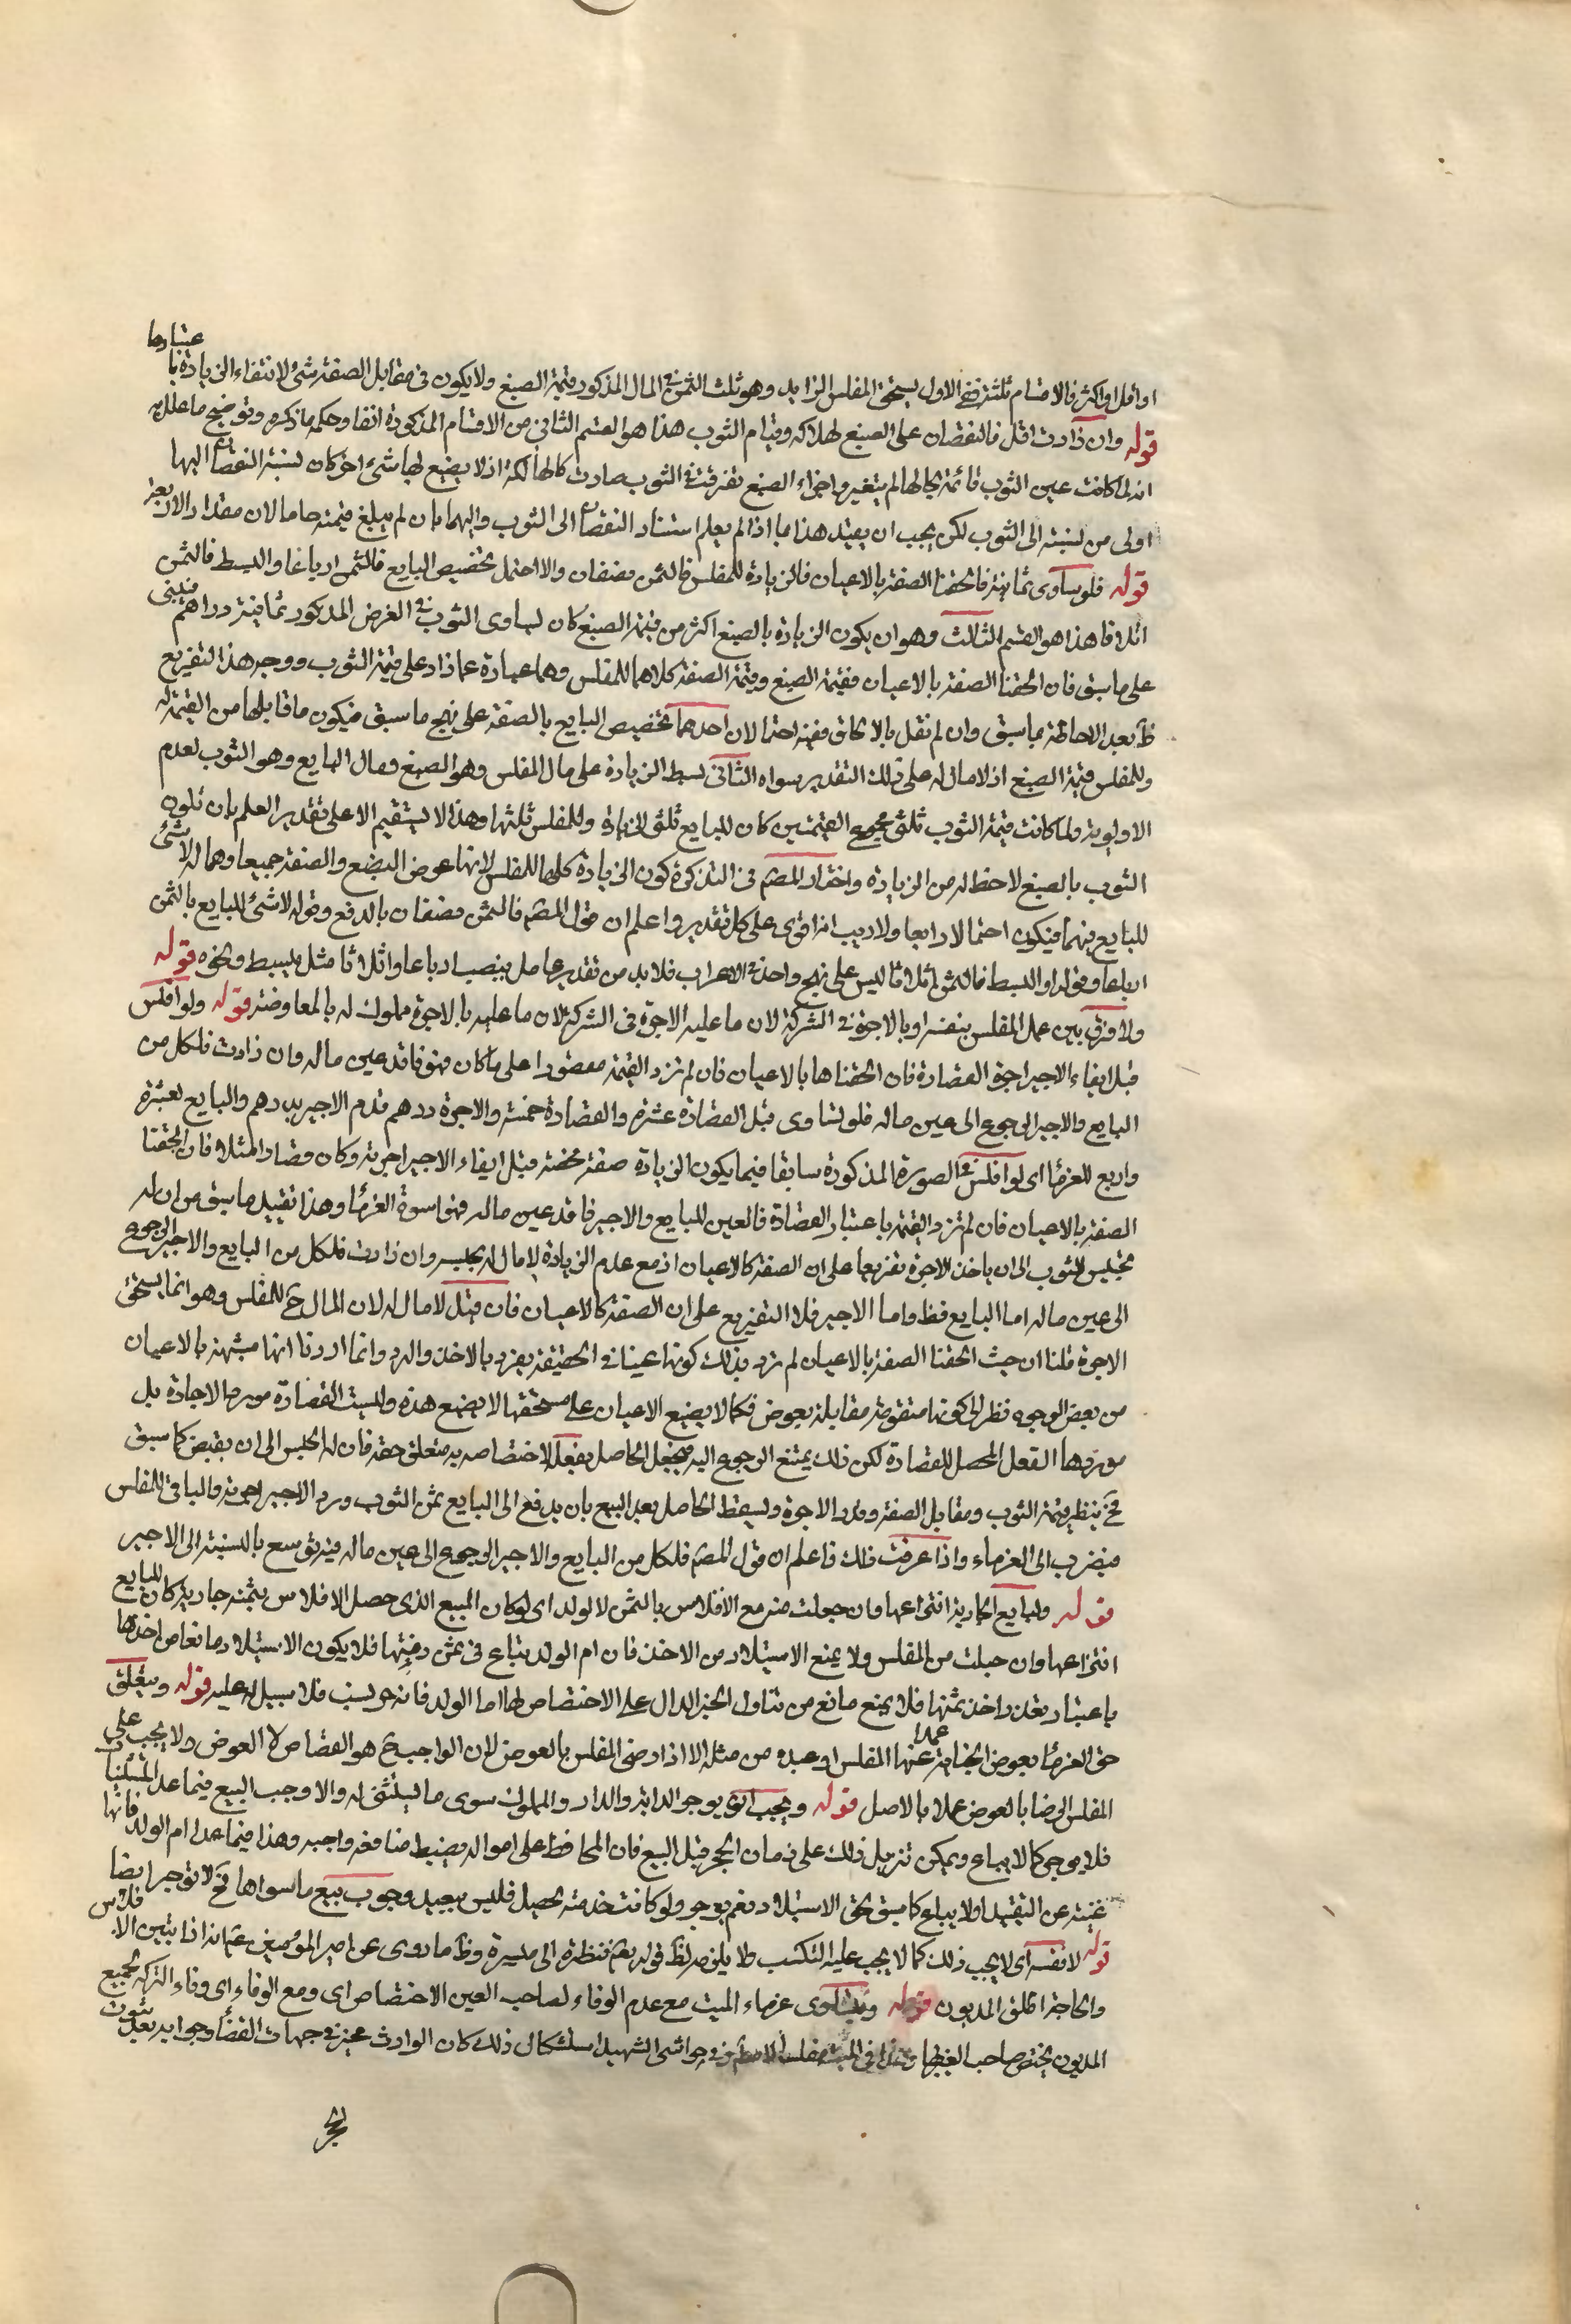 او اقل او اكثر فالاقسام ثلثة ففي الاول يستحق المفلس الزايد وهو ثلث الثمن في المال المذكور قيمة الصبغ ولا يكون في مقابل الصفة شئ لانتفاء الزيادة باعتبارها
قوله وان زادت اقل فالنقصان على الصبغ لهلاكه وقيام الثوب هذا هو القسم الثاني من الاقسام المذكورة انفا وحكمه ما ذكره وتوضيح ما علل به
انه لما كانت عين الثوب قائمة بحالها لم يتغير واجزاء الصبغ تفرقت في الثوب صارت كالهالكة اذ لا يضيع لها شئ اخر كان نسبة النقصان اليها
اولى من نسبته الى الثوب لكن يجب ان يقيد هذا بما اذا لم يعلم استناد النقصان الى الثوب واليهما بان لم يبلغ قيمته حاملا لان مقدار الاربعة
قوله فلو ساوى ثمانية فالحقنا الصفة بالاعيان فالزيادة للمفلس فالثمن نصفان والا احتمل تخصيص البايع فالثمن ارباعا والبسط فالثمن
اثلاثا هذا هو القسم الثالث وهو ان يكون الزيادة بالصبغ اكثر من قيمة الصبغ كان يساوى الثوب في الفرض المذكور ثمانية دراهم فيبنى
على ما سبق فان الحقنا الصفة بالاعيان فقيمة الصبغ وقيمة الصفة كلاهما للمفلس وهما عبارة عما زاد على قيمة الثوب ووجه هذا التفريع
ظ بعد الاحاطة بما سبق وان لم نقل بالالحاق ففيه احتمالان احدهما تخصيص البايع بالصفة على نهج ما سبق فيكون ما قابلها من القيمة له
وللمفلس قيمة الصبغ اذ لا مال له على ذلك التقدير سواه الثانى بسط الزيادة على مال المفلس وهو الصبغ ومال البايع وهو الثوب لعدم
الاولوية ولما كانت قيمة الثوب ثلثى مجموع القيمتين كان للبايع ثلثى الزيادة وللمفلس ثلثها وهذا لا يستقيم الا على تقدير العلم بان تلون
الثوب بالصبغ لا حظ له من الزيادة واختار المصم في التذكرة كون الزيادة كلها للمفلس لانها عوض الصبغ والصفة جميعا وهما له لا شئ
للبايع فيهما فيكون احتمالا رابعا ولا ريب انه اقوى على كل تقدير واعلم ان قول المصم فالثمن نصفان بالدفع وقوله لا شئ للبايع بالثمن
ارباعا وقوله او البسط فالثمن اثلاثا ليس على نهج واحد في الاعراب فلا بد من تقدير عامل ينصب ارباعا واثلاثا مثل يبسط ونحوه قوله
ولا فرق بين عمل المفلس بنفسه او بالاجرة في الشركة لان ما عليه الاجرة في الشركة لان ما عليه بالاجرة مملوك له بالمعاوضة قوله ولو افلس
قبل ايفاء الاجير اجرة القصارة فان الحقناها بالاعيان فان لم تزد القيمة مقصورا على ما كان فهو فاقد عين ماله وان زادت فلكل من
البايع والاجير الرجوع الى عين ماله فلو تساوى قبل القصارة عشرة والقصارة خمسة والاجرة درهم قدم الاجير بدرهم والبايع بعشرة
واربع للغرما اى لو افلس في الصورة المذكورة سابقا فيما يكون الزيادة صفة محضة قبل ايفاء الاجير اجرته وكان قصارا مثلا فان الحقنا
الصفة بالاعيان فان لم تزد القيمة باعتبار القصارة فالعين للبايع والاجير فاقد عين ماله فهو اسوة الغرما وهذا تقييد ما سبق من ان له
تحبيس الثوب الى ان ياخذ الاجرة تفريعا على ان الصفة كالاعيان اذ مع عدم الزيادة لا مال له يحبسه وان زادت فلكل من البايع والاجير الرجوع
الى عين ماله اما البايع فظ واما الاجير فلا التفريع على ان الصفة كالاعيان فان قيل لا مال له لان المال ح للمفلس وهو انما يستحق
الاجرة قلنا ان حيث الحقنا الصفة بالاعيان لم نرد بذلك كونها عينا في الحقيقة يفرد بالاخذ والرد وانما اردنا انها مشبهة بالاعيان
من بعض الوجوه نظرا الى كونها متقومة مقابلة بعوض فكما لا يضيع الاعيان على مستحقها لا يضيع هذه وليست القصارة مورد الاجارة بل
موردها الفعل المحصل للقصارة لكن ذلك يمتنع الرجوع اليه فيجعل الحاصل بفعله لاختصاصه به متعلق حقه فان له الحبس الى ان يقبض كما سبق
فح ينظر قيمة الثوب ومقابل الصفة وقدر الاجرة ويسقط الحاصل بعد البيع بان يدفع الى البايع ثمن الثوب ويرد الاجير اجرته والباقي للمفلس
فيضرب الى الغرماء واذا عرفت ذلك فاعلم ان قول المصم فلكل من البايع والاجير الرجوع الى عين ماله فيه توسع بالنسبة الى الاجير
قوله ولبايع الجارية انتزاعها وان حبلت منه مع الافلاس بالثمن لا لولد اى لو كان المبيع الذى حصل الافلاس بثمنه جارية كان للبايع
انتزاعها وان حبلت من المفلس ولا يمنع الاستيلاد من الاخذ فان ام الولد تباع في ثمن رقبتها فلا يكون الاستيلاد مانعا من اخذها
باعتبار تعذر اخذ ثمنها فلا يمنع مانع من تناول الخبر الدال على الاختصاص لها اما الولد فانه حر نسيب فلا سبيل له عليه قوله ويتعلق
حق الغرما بعوض الجناية عنها عمدا المفلس او عبده من مثله الا اذا رضى المفلس بالعوض لان الواجب ح هو القصاص لا العوض ولا يجب على
المفلس الرضا بالعوض عملا بالاصل قوله ويجب ان يوجر الدابة والدار والمملوك سوى ما يستثنى له والا وجب البيع فيما عدا المستثنيات
فلا يوجر كما لا يباع ويمكن تنزيل ذلك على زمان الحجر قبل البيع فان المحافظ على امواله وضبط منافعه واجبه وهذا فيما عدا ام الولد فانها
غنية عن التقييد اولا يباع كما سبق لحق الاستيلاد نعم يوجر ولو كانت خدمته تحصيل فليس ببعيد وجوب بيع ما سواها فح لا توجر ايضا
قوله لا نفسه اى لا يجب ذلك كما لا يجب عليه التكسب ولا يلزم لظ قوله تعم فنظرة الى ميسرة وظ ما روى عن امير المؤمنين عم انه اذا يتبين الافلاس
والحاجة اطلق المديون قوله ويتساوى غرماء الميت مع عدم الوفاء لصاحب العين الاختصاص اى ومع الوفاء اى وفاء التركه بجميع
المديون يختص صاحب العين بها في حواشى الشهيد استشكال ذلك كان الوارث مخير في جهات القضا وجوابه بعد ثبوت